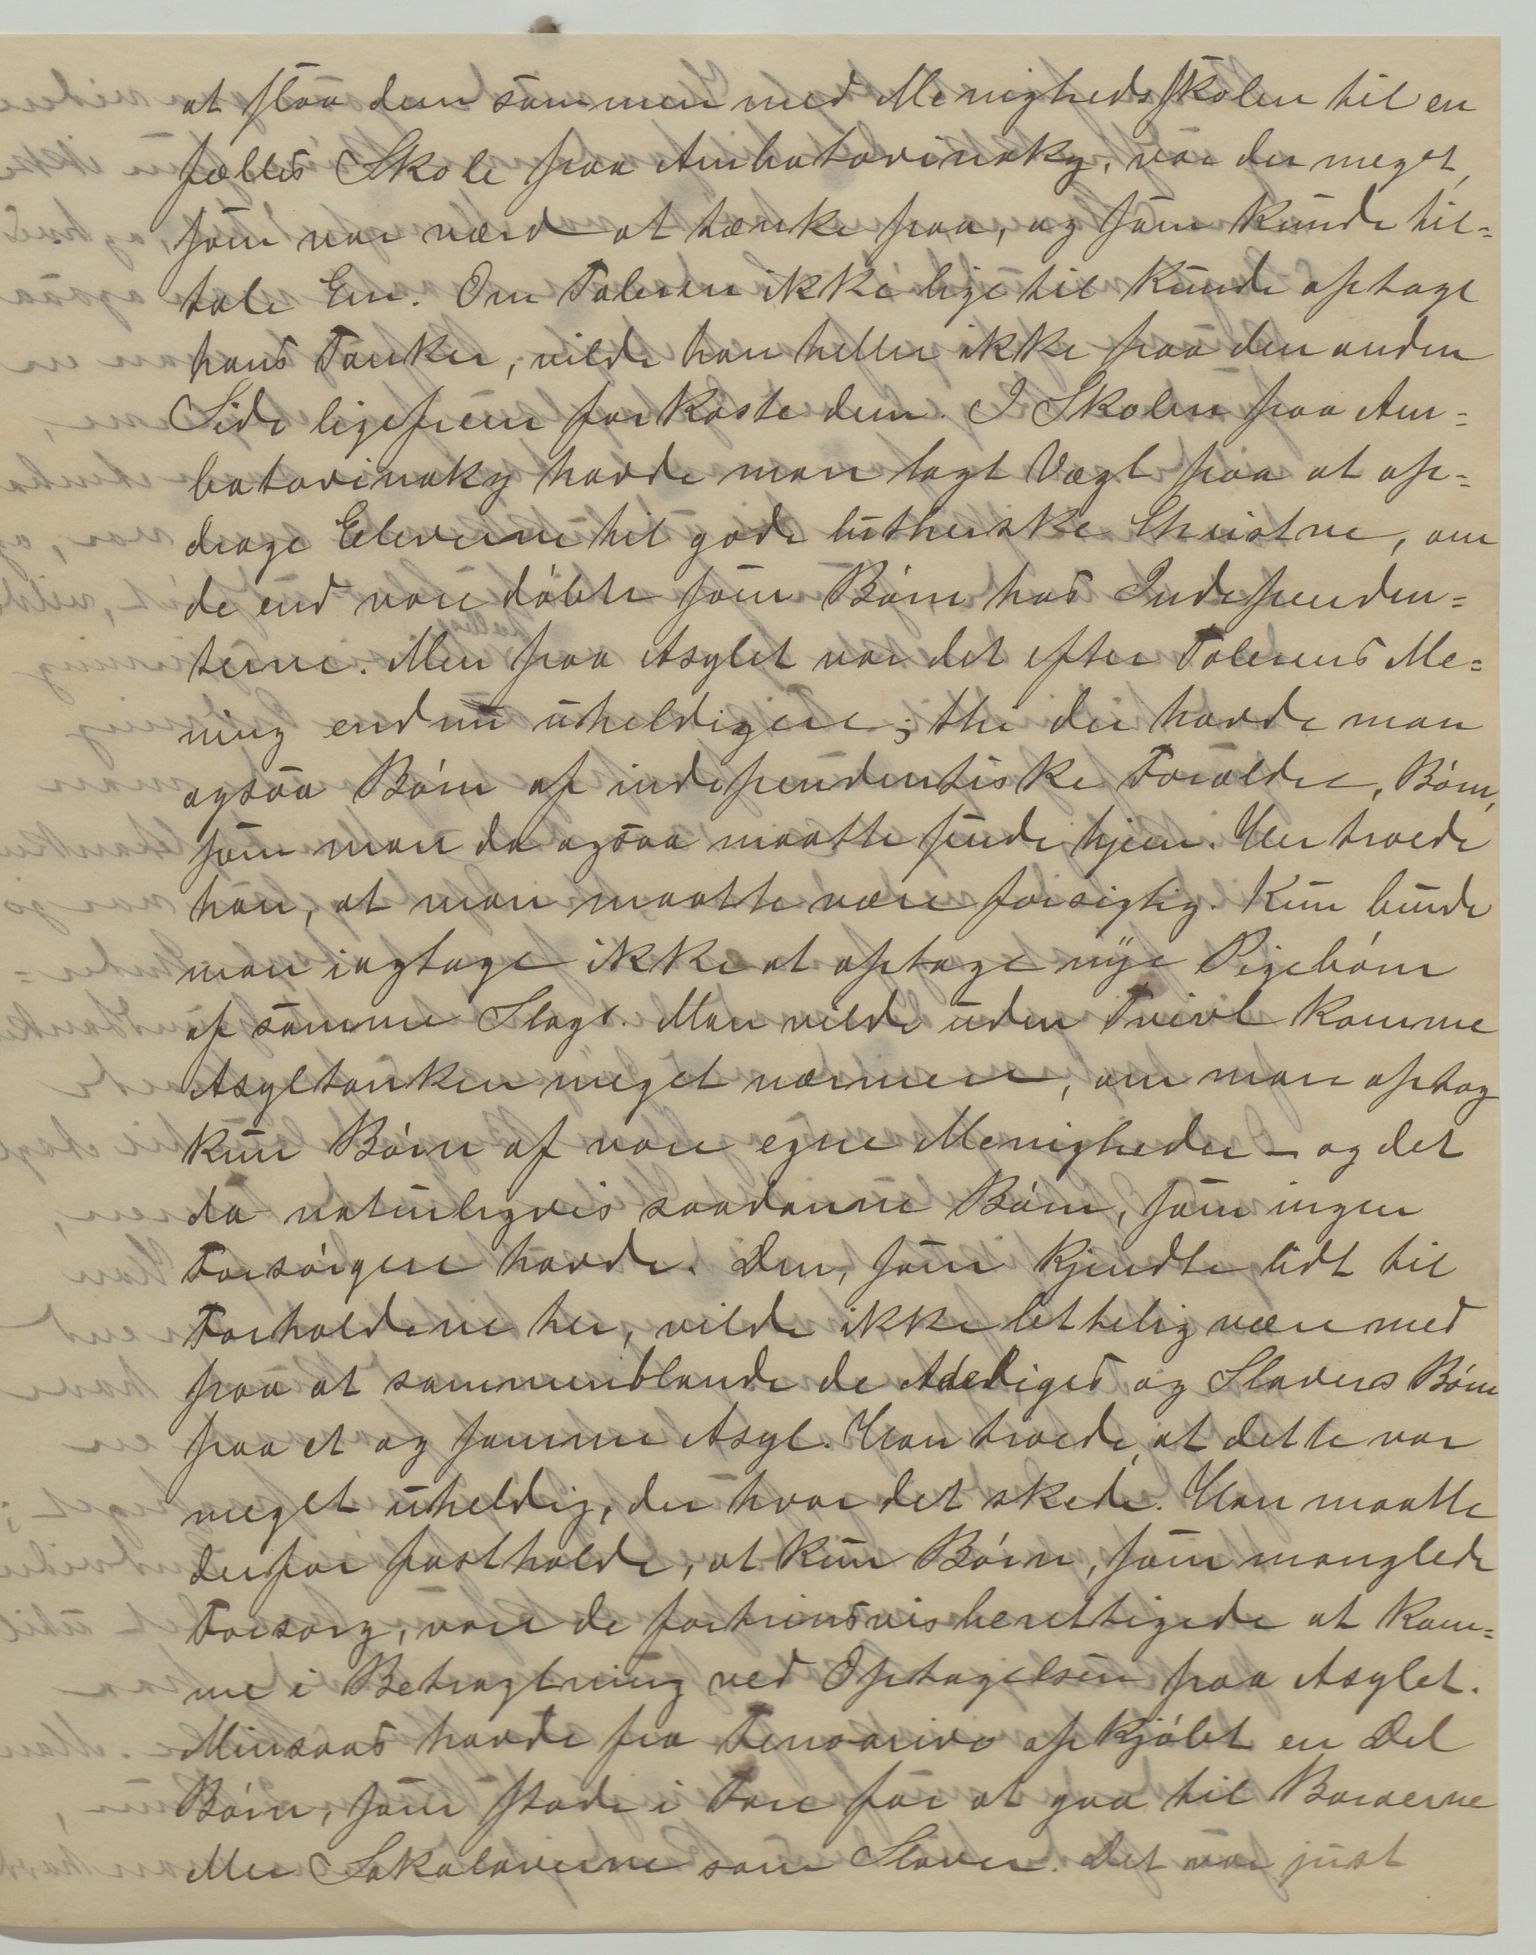 at slaa dem sammen med Menighedsskolen til en
fælles Skole paa Ambatovinaky, var der meget,
som var værd at tænke paa, og som kunde til=
tale En. Om Taleren ikke lige til kunde optage
hans Tanker, vilde han heller ikke paa den anden
Side ligefrem forkaste dem. I Skolen paa Am=
batovinaky havde man lagt Vægt paa at op=
drage Eleverne til gode lutherske Christne, om
de end vare døbte som Børn hos Independen=
terne. Men paa Asylet var det efter Talerens Me=
ning endnu uheldigere; thi der havde man
ogsaa Børn af independentiske Forældre, Børn,
som man da ogsaa maatte sende hjem. Her troede
han, at man maatte være forsigtig. Kun burde
man iagtage ikke at optage nye Pigebørn
af samme Slags. Man vilde uden Tvivl komme
Asyltanken meget nærmere, om man optog
kun Børn af vore egne Menigheder – og det
da naturligvis saadanne Børn, som ingen
Forsørgere havde. Den, som kjendte lidt til
Forholdene her, vilde ikke lettelig være med
paa at sammenblande de Adeliges og Slavers Børn
paa et og samme Asyl. Han troede, at dette var
meget uheldig, der hvor det skede. Han maatte
derfor fastholde, at kun Børn, som manglede
Forsorg, vare de fortrinsvis berettigede at kom=
me i Betragtning ved Optagelsen paa Asylet.
Minsaas havde fra Fenoarivo opkjøbt en Del
Børn, som stode i Fare for at gaa til Baraerne
eller Sakalaverne som Slaver. Det var just